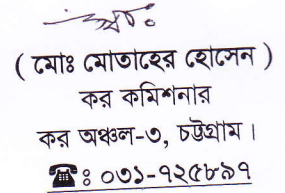 ( মোঃ মোতাহের হোসেন )
কর কমিশনার
কর অঞ্চল-৩, চট্টগ্রাম ।
☎ঃ ০৩১-৭২৫৮৯৭